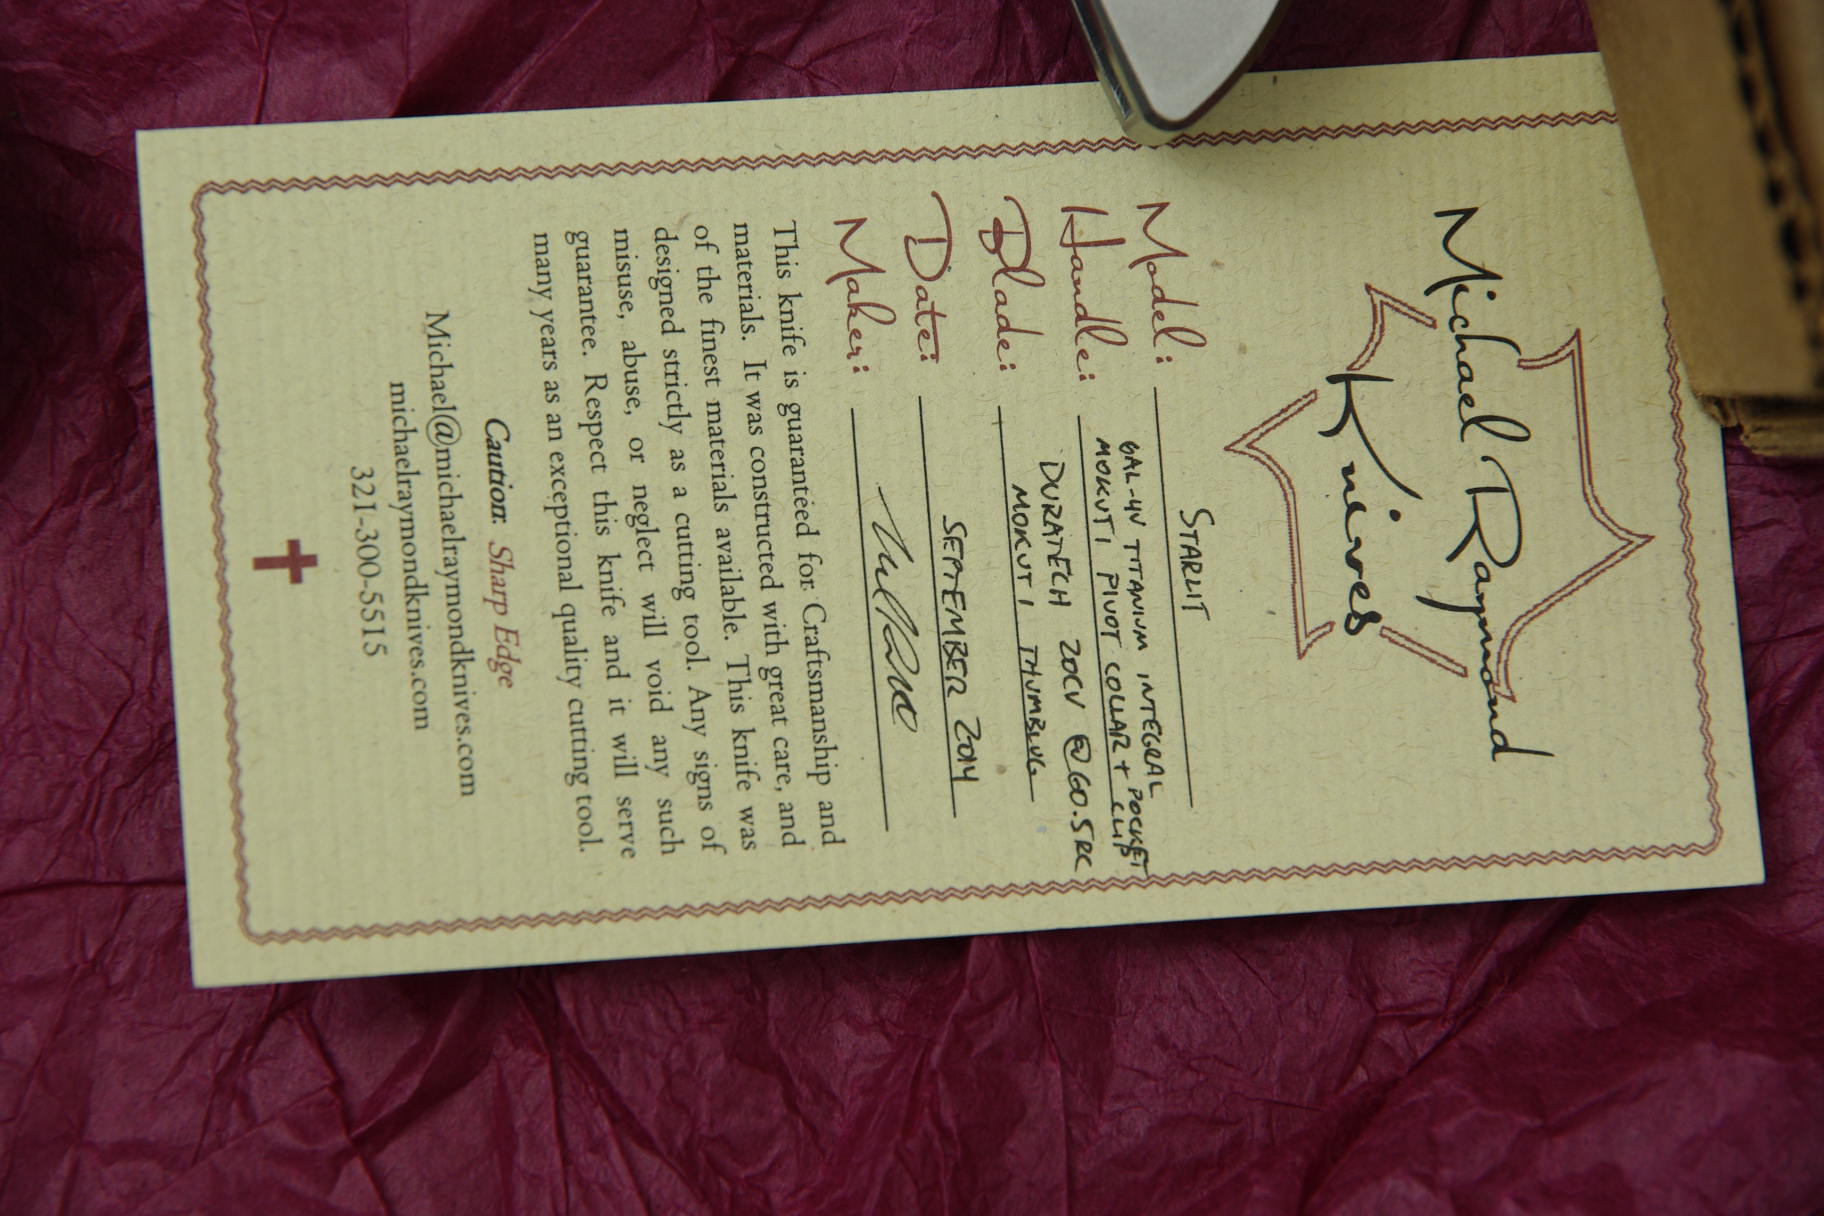 Michael Raymond
Knives
Model: STARLIT
Handle: 6AL-4V TITANIUM INTEGRAL
MOKUTI PIVOT COLLAR + POCKET CLIP
Blade: DURATECH 20CV @ 60.5RC
MOKUTI THUMBLUG
Date: SEPTEMBER 2014
Maker:
This knife is guaranteed for Craftsmanship and
materials. It was constructed with great care, and
of the finest materials available. This knife was
designed strictly as a cutting tool. Any signs of
misuse, abuse, or neglect will void any such
guarantee. Respect this knife and it will serve
many years as an exceptional quality cutting tool.
Caution: Sharp Edge
Michael@michaelraymondknives.com
michaelraymondknives.com
321-300-5515